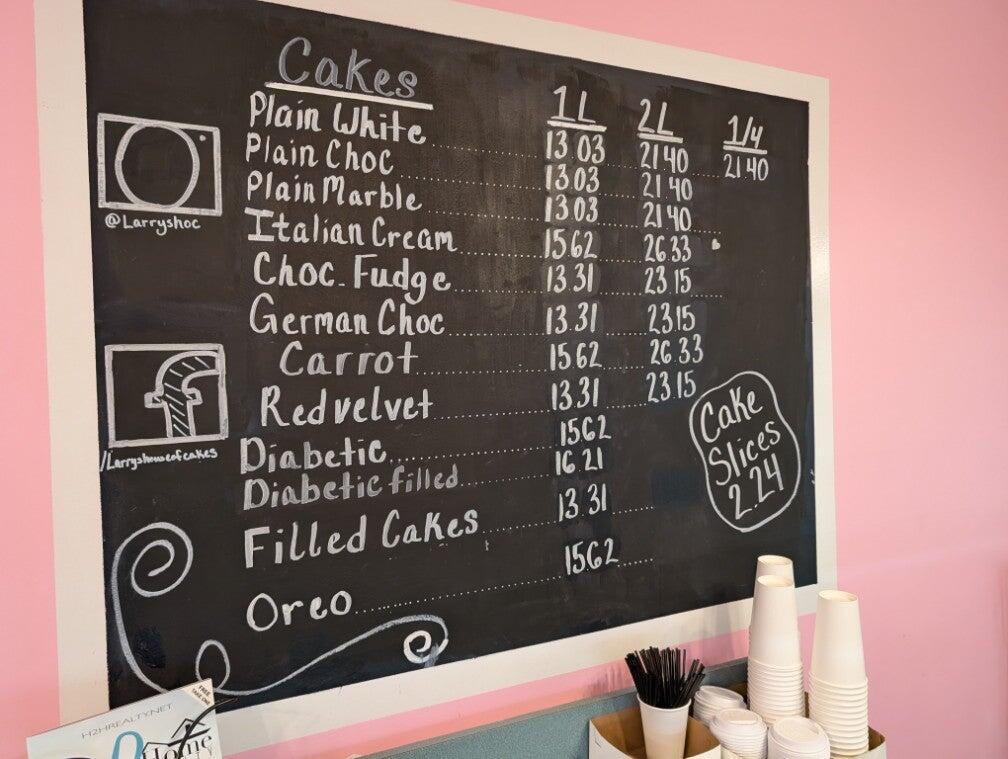 Cakes
1L 2L 1/4
Plain White 13 03 21 40 21 40
Plain Choc 13 03 21 40
Plain Marble 13 03 21 40
Italian Cream 15 62 26 33
Choc. Fudge 13.31 23 15
German Choc 13.31 23 15
Carrot 15 62 26 33
Red velvet 13.31 23 15
Diabetic 15 62
Diabetic filled 16 21
Filled Cakes 13 31
Oreo 15 62
@Larryshoc
f
/Larryshouseofcakes
Cake
Slices
2.24
FREE
TAKE ONE
H2HREALTY.NET
Home